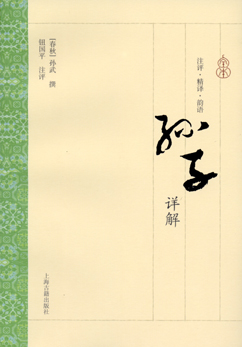 注评·精译·韵语
孙子
详解
[春秋]孙武 撰
钮国平 注评
上海古籍出版社